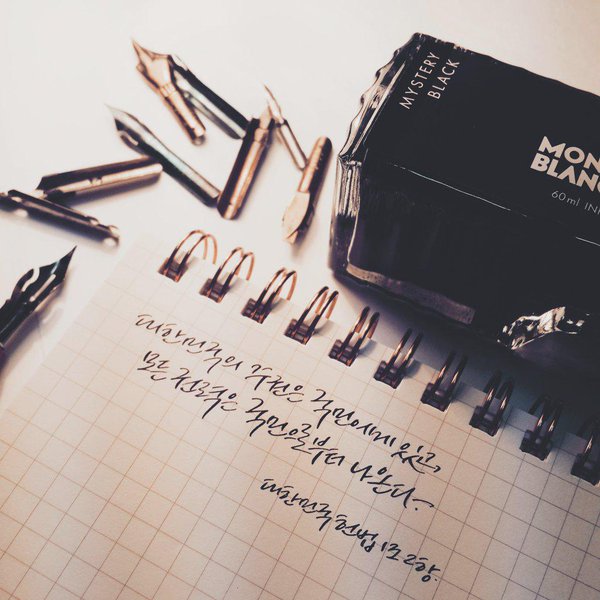 MYSTERY
BLACK
MON
BLANC
60ml IN
대한민국의 주권은 국민에게 있고,
모든 권력은 국민으로부터 나온다.
대한민국헌법 1조 2항.